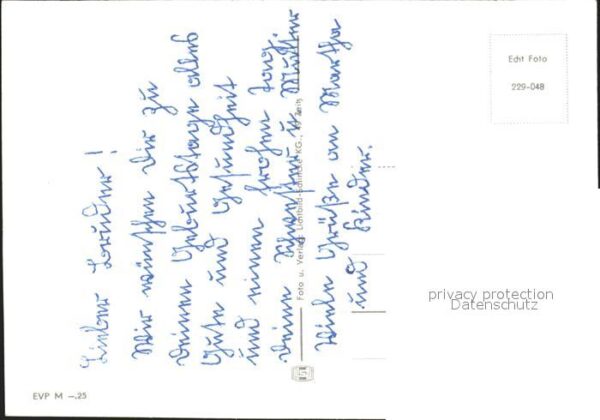 Lieber Bruder!
Wir wünschen Dir zu
Deinem Geburtstage alles
Gute und Gesundheit
und einen frohen Tag.
Deine Schwester u. Mutter
Viele Grüße an Martha
und Kinder.
Foto u. Verlag Lichtbild-
KG., Zeitz
Echt Foto
229-048
EVP M -.25
privacy protection
Datenschutz